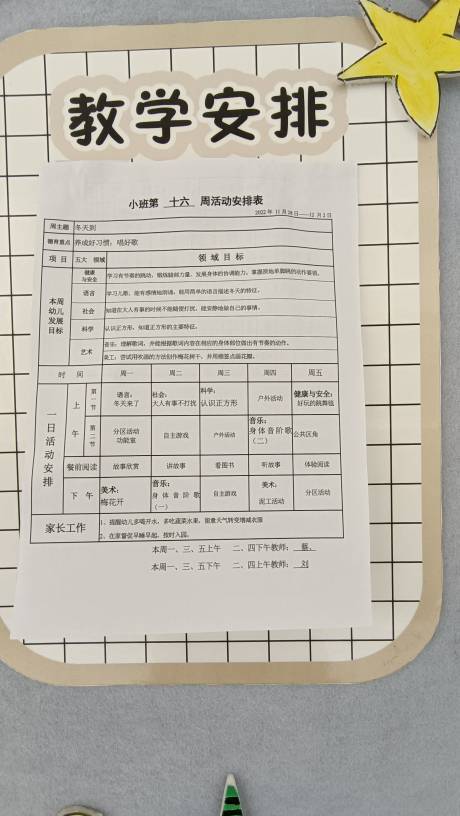 教学安排
小班第 十六 周活动安排表
2022年 11月28日——12月2日
周主题 冬天到
德育重点 养成好习惯;唱好歌
项 目 五大 领域 领 域 目 标
本周幼儿发展目标
健康与安全 学习有节奏的跳动,锻炼腿部力量,发展身体的协调能力,掌握原地单脚跳的动作要领。
语言 学习儿歌,能有感情地朗诵,能用简单的语言描述冬天的特征。
社会 知道在大人有事的时候不能随便打扰,能安静地做自己的事情。
科学 认识正方形,知道正方形的主要特征。
艺术 音乐:理解歌词,并能根据歌词内容在相应的身体部位做出有节奏的动作。
美工:尝试用吹画的方法创作梅花树干,并用棉签点画花瓣。
时 间 周一 周二 周三 周四 周五
一日活动安排
上午
第一节 语言:冬天来了 社会:大人有事不打扰 科学:认识正方形 户外活动 健康与安全:好玩的跳舞毯
第二节 分区活动 功能室 自主游戏 户外活动 音乐:身体音阶歌(二) 公共区角
餐前阅读 故事欣赏 讲故事 看图书 听故事 体验阅读
下 午 美术:梅花开 音乐:身体音阶歌(一) 自主游戏 美术:泥工活动 分区活动
家长工作 1、提醒幼儿多喝开水,多吃蔬菜水果,留意天气转变增减衣服
2、在家督促早睡早起,按时入园。
本周一、三、五上午 二、四下午教师: 蔡、
本周一、三、五下午 二、四上午教师: 刘